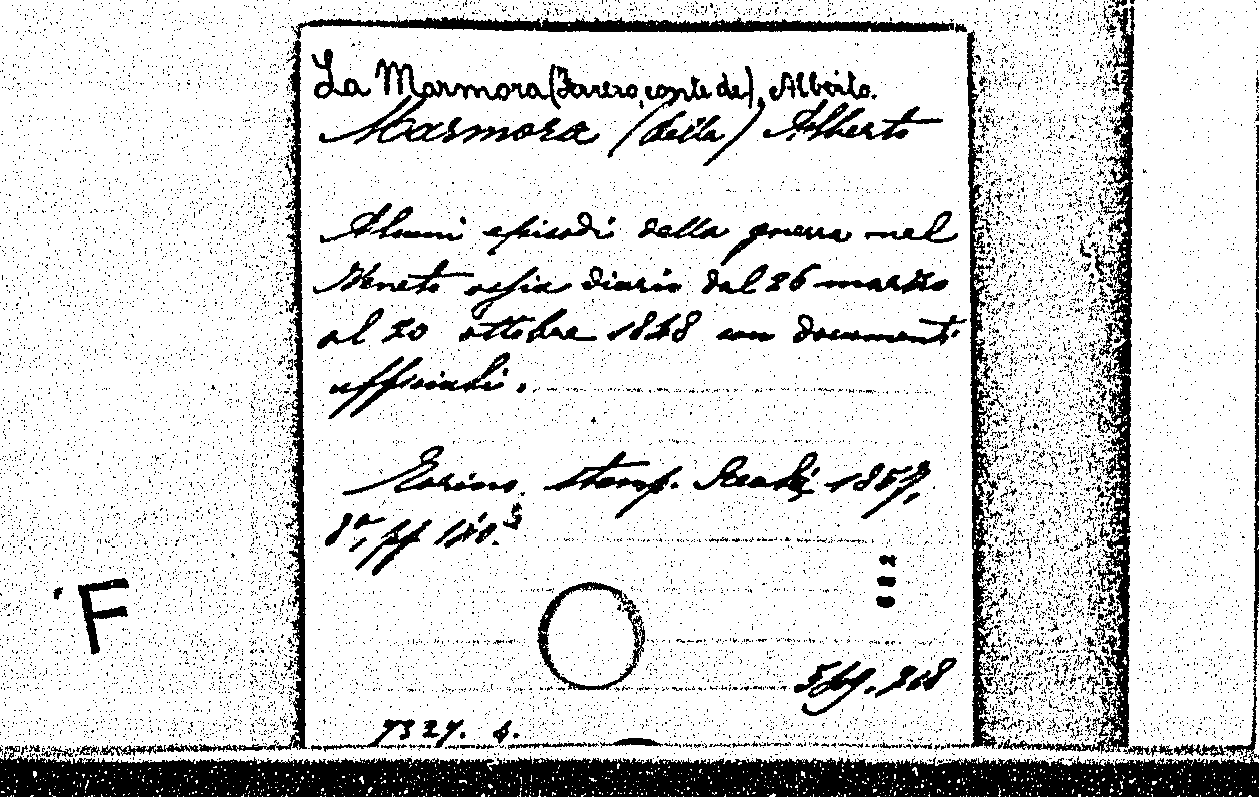 La Marmora (Ferrero, conte de), Alberto.
Marmora (della) Alberto
Alcuni episodi della guerra nel
Veneto ossia diario dal 26 marzo
al 20 ottobre 1848 con documenti
ufficiali.
Torino, stamp. Reale, 1857,
8°, pp 140.
682
268
7327. 4.
F